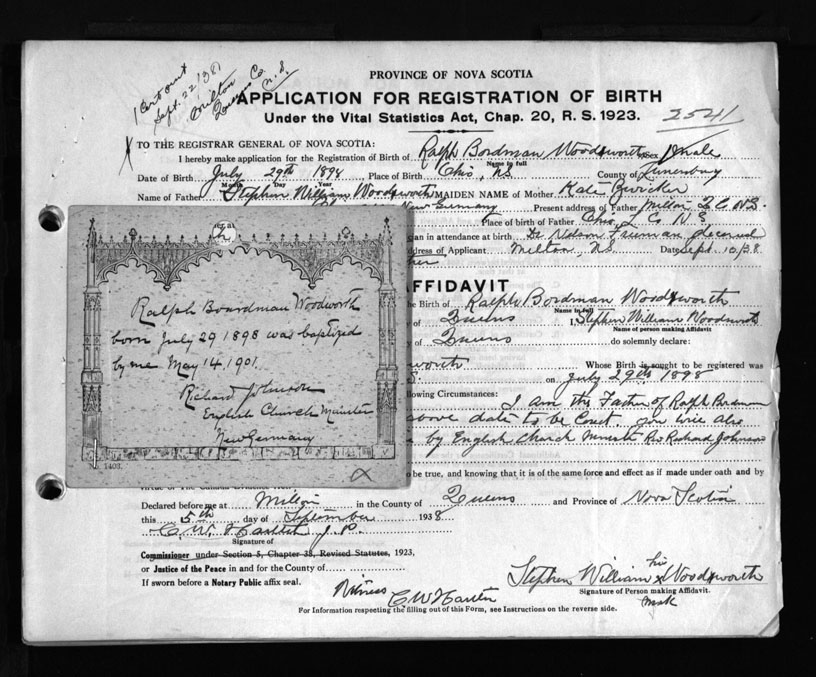 1 Cert out
Sept. 22/38
Milton
Queens Co.
N.S.
PROVINCE OF NOVA SCOTIA
APPLICATION FOR REGISTRATION OF BIRTH
Under the Vital Statistics Act, Chap. 20, R. S. 1923.
2541
X TO THE REGISTRAR GENERAL OF NOVA SCOTIA:
I hereby make application for the Registration of Birth of Ralph Bordman Woodsworth Sex Male
Name in full
Date of Birth July 29th 1898 Place of Birth Ohio, NS County of Lunenburg
Month Day Year
Name of Father Stephen William Woodsworth MAIDEN NAME of Mother Kate Zwicker
New Germany Present address of Father Milton Q.C. N.S.
Place of Birth of Father Ohio L. Co. N.S
an in attendance at birth Dr Nelson Freeman deceased
ddress of Applicant Milton, NS Date Sept. 10/38
ther
FFIDAVIT
he Birth of Ralph Bordman Woodsworth
Name in full
y of Queens I, Stephen William Woodsworth
Name of person making Affidavit
y of Queens do solemnly declare:
worth Whose Birth is sought to be registered was
S. on July 29th 1898
llowing Circumstances: I am the Father of Ralph Bordman
above date to be Corect.
by English Church Minister Rev Richard Johnson
Ralph Boardman Woodworth
born July 29 1898 was baptized
by me May 14 1901.
Richard Johnson
English Church Minister
New Germany
1403.
to be true, and knowing that it is of the same force and effect as if made under oath and by
Declared before me at Milton in the County of Queens and Province of Nova Scotia
this 5th day of September 1938
C.W. Hartlen J.P.
Signature of
Commissioner under Section 5, Chapter 38, Revised Statutes, 1923,
or Justice of the Peace in and for the County of
If sworn before a Notary Public affix seal.
Stephen William his x Woodsworth
mark
Signature of Person making Affidavit.
Witness C W Hartlen
For Information respecting the filling out of this Form, see Instructions on the reverse side.